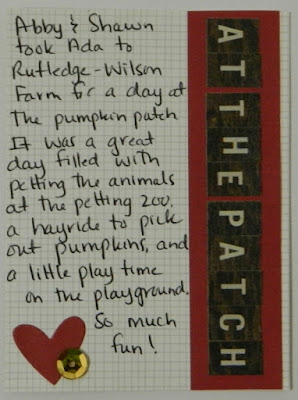 Abby & Shawn
took Ada to
Rutledge-Wilson
Farm for a day at
the pumpkin patch
It was a great
day filled with
petting the animals
at the petting zoo,
a hayride to pick
out pumpkins, and
a little play time
on the playground.
So much
fun!
AT THE PATCH